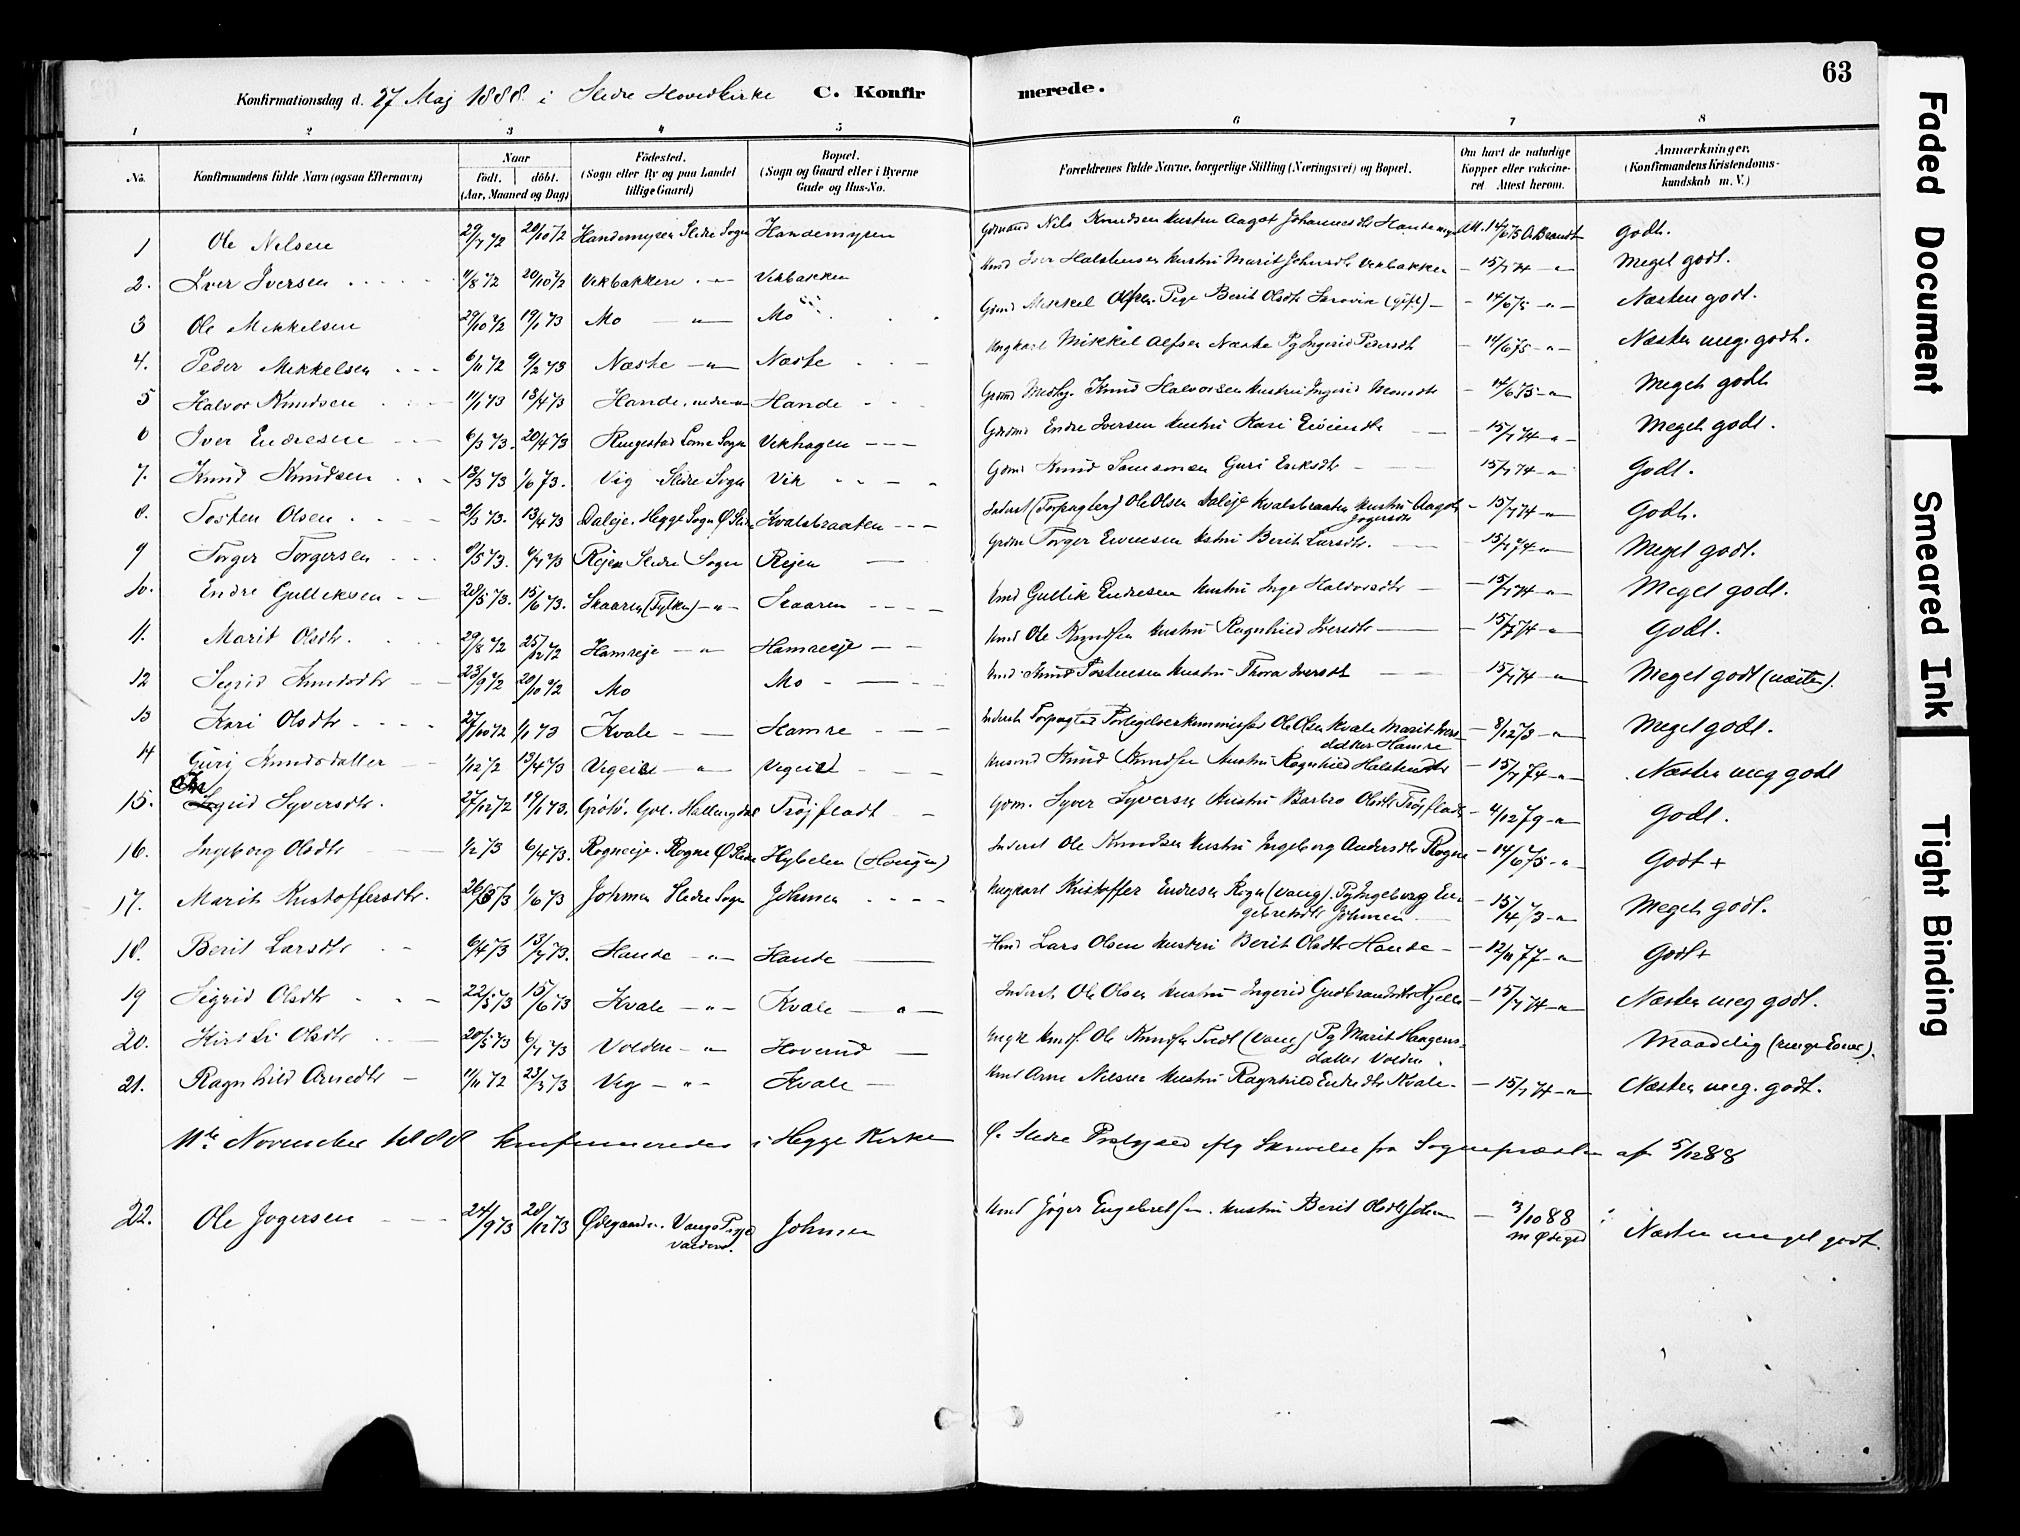 63
Konfirmationsdag d. 27 Maj 1888 i Slidre Hovedkirke C. Konfirmerede.
1 2 3 4 5 6 7 8
No. Konfirmandens fulde Navn (ogsaa Efternavn) Naar født. døbt. (Aar, Maaned og Dag) Fødested. (Sogn eller By og paa Landet tillige Gaard) Bopæl. (Sogn og Gaard eller i Byerne Gade og Hus-No. Forældrenes fulde Navne, borgerlige Stilling (Næringsvei) og Bopæl. Om havt de naturlige Kopper eller vaccineret Attest herom. Anmærkninger. (Konfirmandens Kristendomskundskab m. V.)
1 Ole Nilsen 29/7 72 20/10 72 Handemyren Slidre Sogn Handemyren Gdmand Nils Knudsen Hustru Aagot Johannesdtr Att. 14/6 75 Brandt Godt.
2. Iver Iversen 11/8 72 20/10 72 Vikbakken - " - Vikbakken Iver Halstensen Hustru Marit Vikbakken - 15/7 74 - " Meget godt.
3 Ole Mikkelsen 29/10 72 19/1 73 Mo - " - Mo Mikkel Olsen Pige Berit Olsdtr (gift) - 14/6 75 " - Næsten godt.
4. Peder Mikkelsen 6/11 72 9/2 73 Næste - " - Næste Ungkarl Mikkel Næste Pg Ingerid Pedersdt - 14/6 75 - " - Næsten meg. godt.
5 Halvor Knudsen 11/1 73 13/4 73 Hande, nedre " Hande Knud Halvorsen Hustru Ingerid - 14/6 75 - " Meget godt
6 Iver Endresen 6/3 73. 20/4 73 Ringestad Lome Sogn Vikhagen Endre Iversen Hustru Kari - 15/7 74 - " Meget godt.
7. Knud Knudsen 13/3 73 1/6 73. Vig Slidre Sogn Vik Knud Samsonsen Guri Eriksdtr 15/7 74 - " Godt.
8. Tosten Olsen 21/3 73. 13/4 73 Daleje. Hegge Sogn Ø Slidre Kvalsbraaten Inderst (Forpagter) Ole Olsen Daleje Kvalsbraaten Hustru Aagot Jogersdtr - 15/7 74 - " Godt.
9 Torger Torgersen 8/5 73. 6/7 73 Rejen Slidre Sogn Rejen Torger Hustru Berit Larsdtr. - 15/7 74 " Meget godt.
10. Endre Gulliksen 28/5 73. 15/6 73. Skaaren (Fylken) - " - Skaaren Gullik Endresen Hustru Inge Halvorsdtr - 15/7 74 - " Meget godt.
11. Marit Olsdtr. 29/8 72 25/12 72 Hamreje - " Hamreeje Ole Knudsen Hustru Ragnhild Iversdtr - 15/7 74 - " Godt.
12 Sigrid Knudsdtr 23/9 72 20/10 72 Mo Mo Knud Tostensen Hustru Thora Iversdt - 15/7 74 - " Meget godt (næsten).
13 Kari Olsdtr 27/10 72 1/1 73 Kvale Hamre Inderst Forpagter Forligelseskommissær Ole Olsen Kvale Marit Iversdatter Hamre - 8/12 73 - " Meget godt.
14 Guri Knudsdatter 1/12 72 13/4 73 Vigeist - " Vigeist Knud Knudsen Hustru Ragnhild Halstensdtr - 15/7 74 - " Næsten meg godt
15. Sigrid Syversdtr. 27/12 72 19/1 73. Gol. Hallingdal Trøjfladt Gdm. Syver Syversen Hustru Barbro Olsdtr Trøjfladt - 4/12 79 - " Godt.
16. Ingeborg Olsdtr 1/2 73 6/4 73. Rogneeje. Rogne Ø Slidre Hybelen (Haugen) Inderst Ole Knudsen Hustru Ingeborg Andersdtr Rogne - 14/6 75 - " Godt +
17. Marit Kristoffersdtr. 26/3 73 1/6 73 Johmen Slidre Sogn Johmen Ungkarl Kristoffer Endresen (Vang). Pg Ingeborg Engebretsdtr Johmen - 15/4 73 - " Meget godt.
18. Berit Larsdtr 6/4 73 13/7 73. Hande - " - Hande Lars Olsen Hustru Berit Olsdtr Hande - 12/11 77 - " Godt +
19 Sigrid Olsdtr 22/5 73 15/6 73 Kvale - " - Kvale - " - Inderst. Ole Olsen Hustru Ingerid Gudbrandsdtr Hjelle - 15/7 74 - " Næsten meg godt.
20. Kirsti Olsdtr 20/5 73 6/7 73 Volden - " Hoverud Ole Knudsen Tvedt (Vang) Pg Marit Haagensdatter Volden Maadelig
21. Ragnhild Arnedtr 11/11 72 23/3 73 Vig - " - Kvale Arne Nilsen Hustru Ragnhild Endredtr Kvale - 15/7 74 - " Næsten meg. godt.
11te November 1888 konfirmeredes i Hegge Kirke Ø. Slidre Prstgjæld iflg Skrivelse fra Sognepræsten af 5/12 88
22. Ole Jogersen 24/9 73 28/12 73 Ødegaarden. Vangs Prgj Valders. Johmen Jøger Engebretsen. Hustru Berit Olsdtr Johmen - 3/10 88 Næsten meget godt.
Faded Document
Smeared Ink
Tight Binding